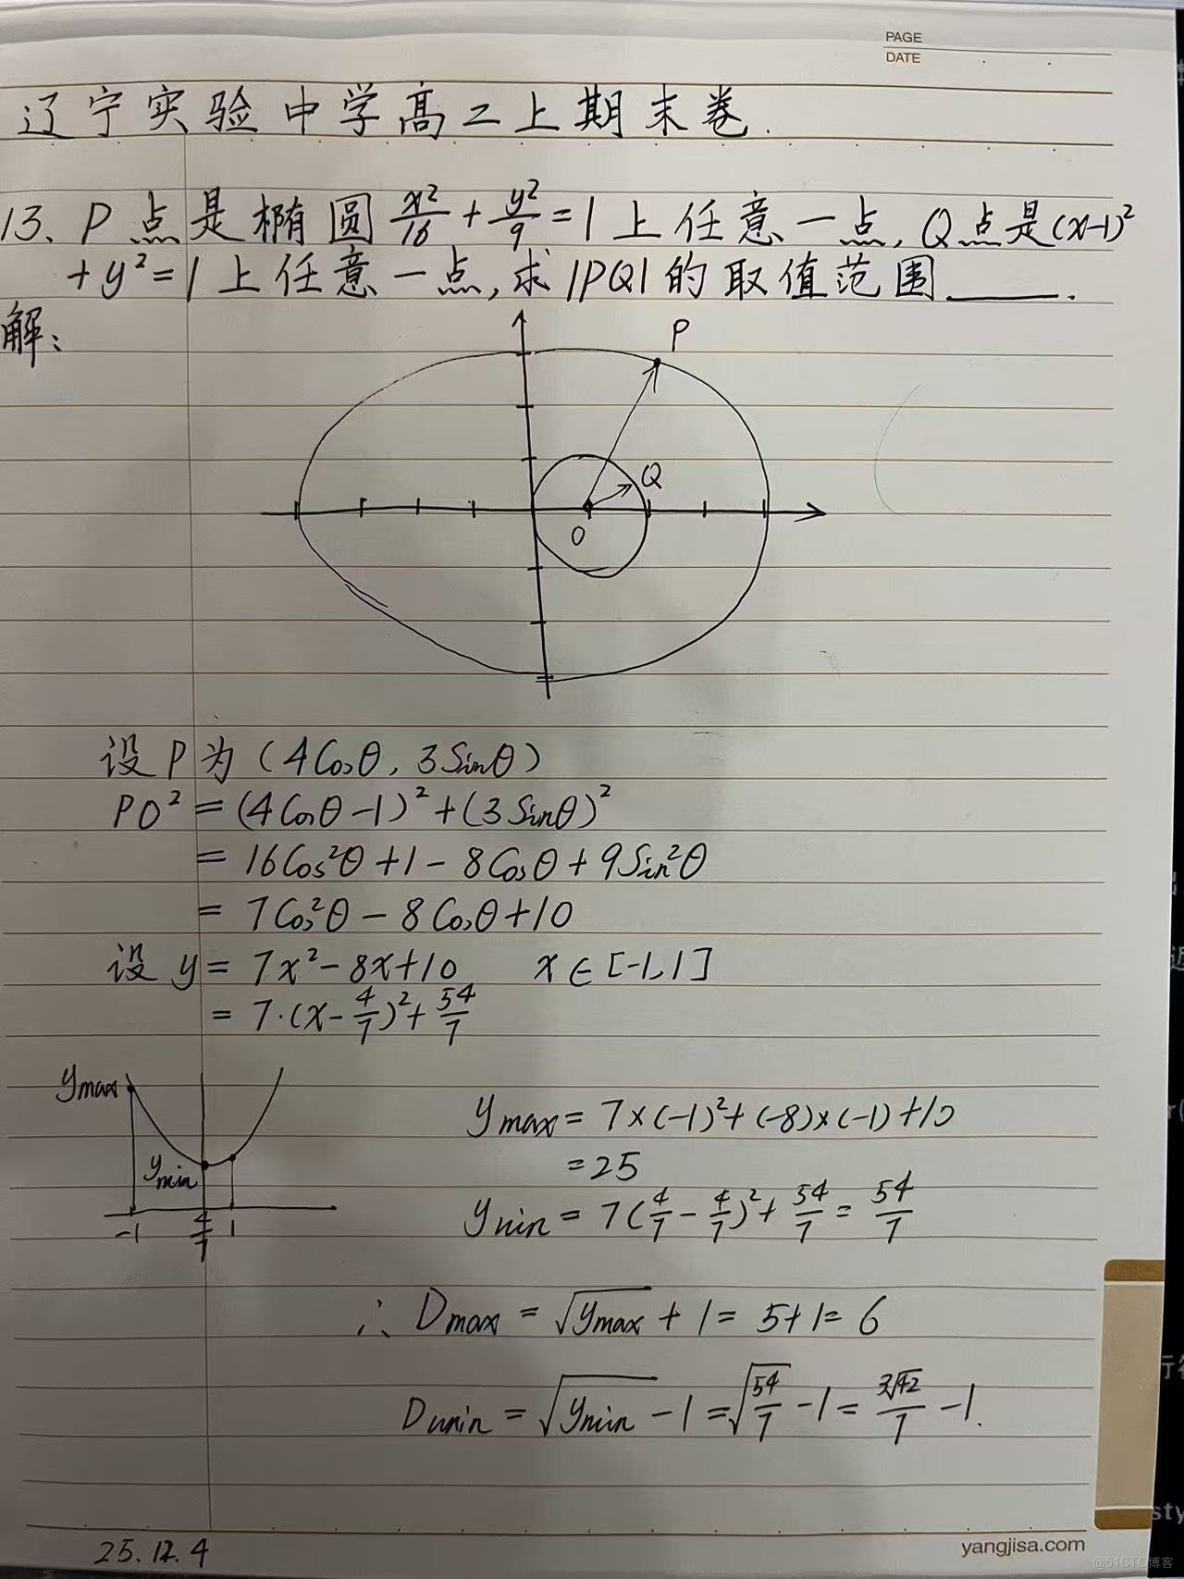 PAGE
DATE
辽宁实验中学高二上期末卷.
13、P点是椭圆x²/16+y²/9=1上任意一点,Q点是(x-1)²
+y²=1上任意一点,求|PQ|的取值范围____.
解:
P
Q
O
设P为(4Cosθ,3Sinθ)
PO²=(4Cosθ-1)²+(3Sinθ)²
=16Cos²θ+1-8Cosθ+9Sin²θ
=7Cos²θ-8Cosθ+10
设y=7x²-8x+10 x∈[-1,1]
=7·(x-4/7)²+54/7
ymax
ymin
-1 4/7 1
ymax=7×(-1)²+(-8)×(-1)+10
=25
ymin=7(4/7-4/7)²+54/7=54/7
∴Dmax=√ymax+1=5+1=6
Dmin=√ymin-1=√(54/7)-1=3√42/7-1.
25.12.4
yangjisa.com
@51CTO博客